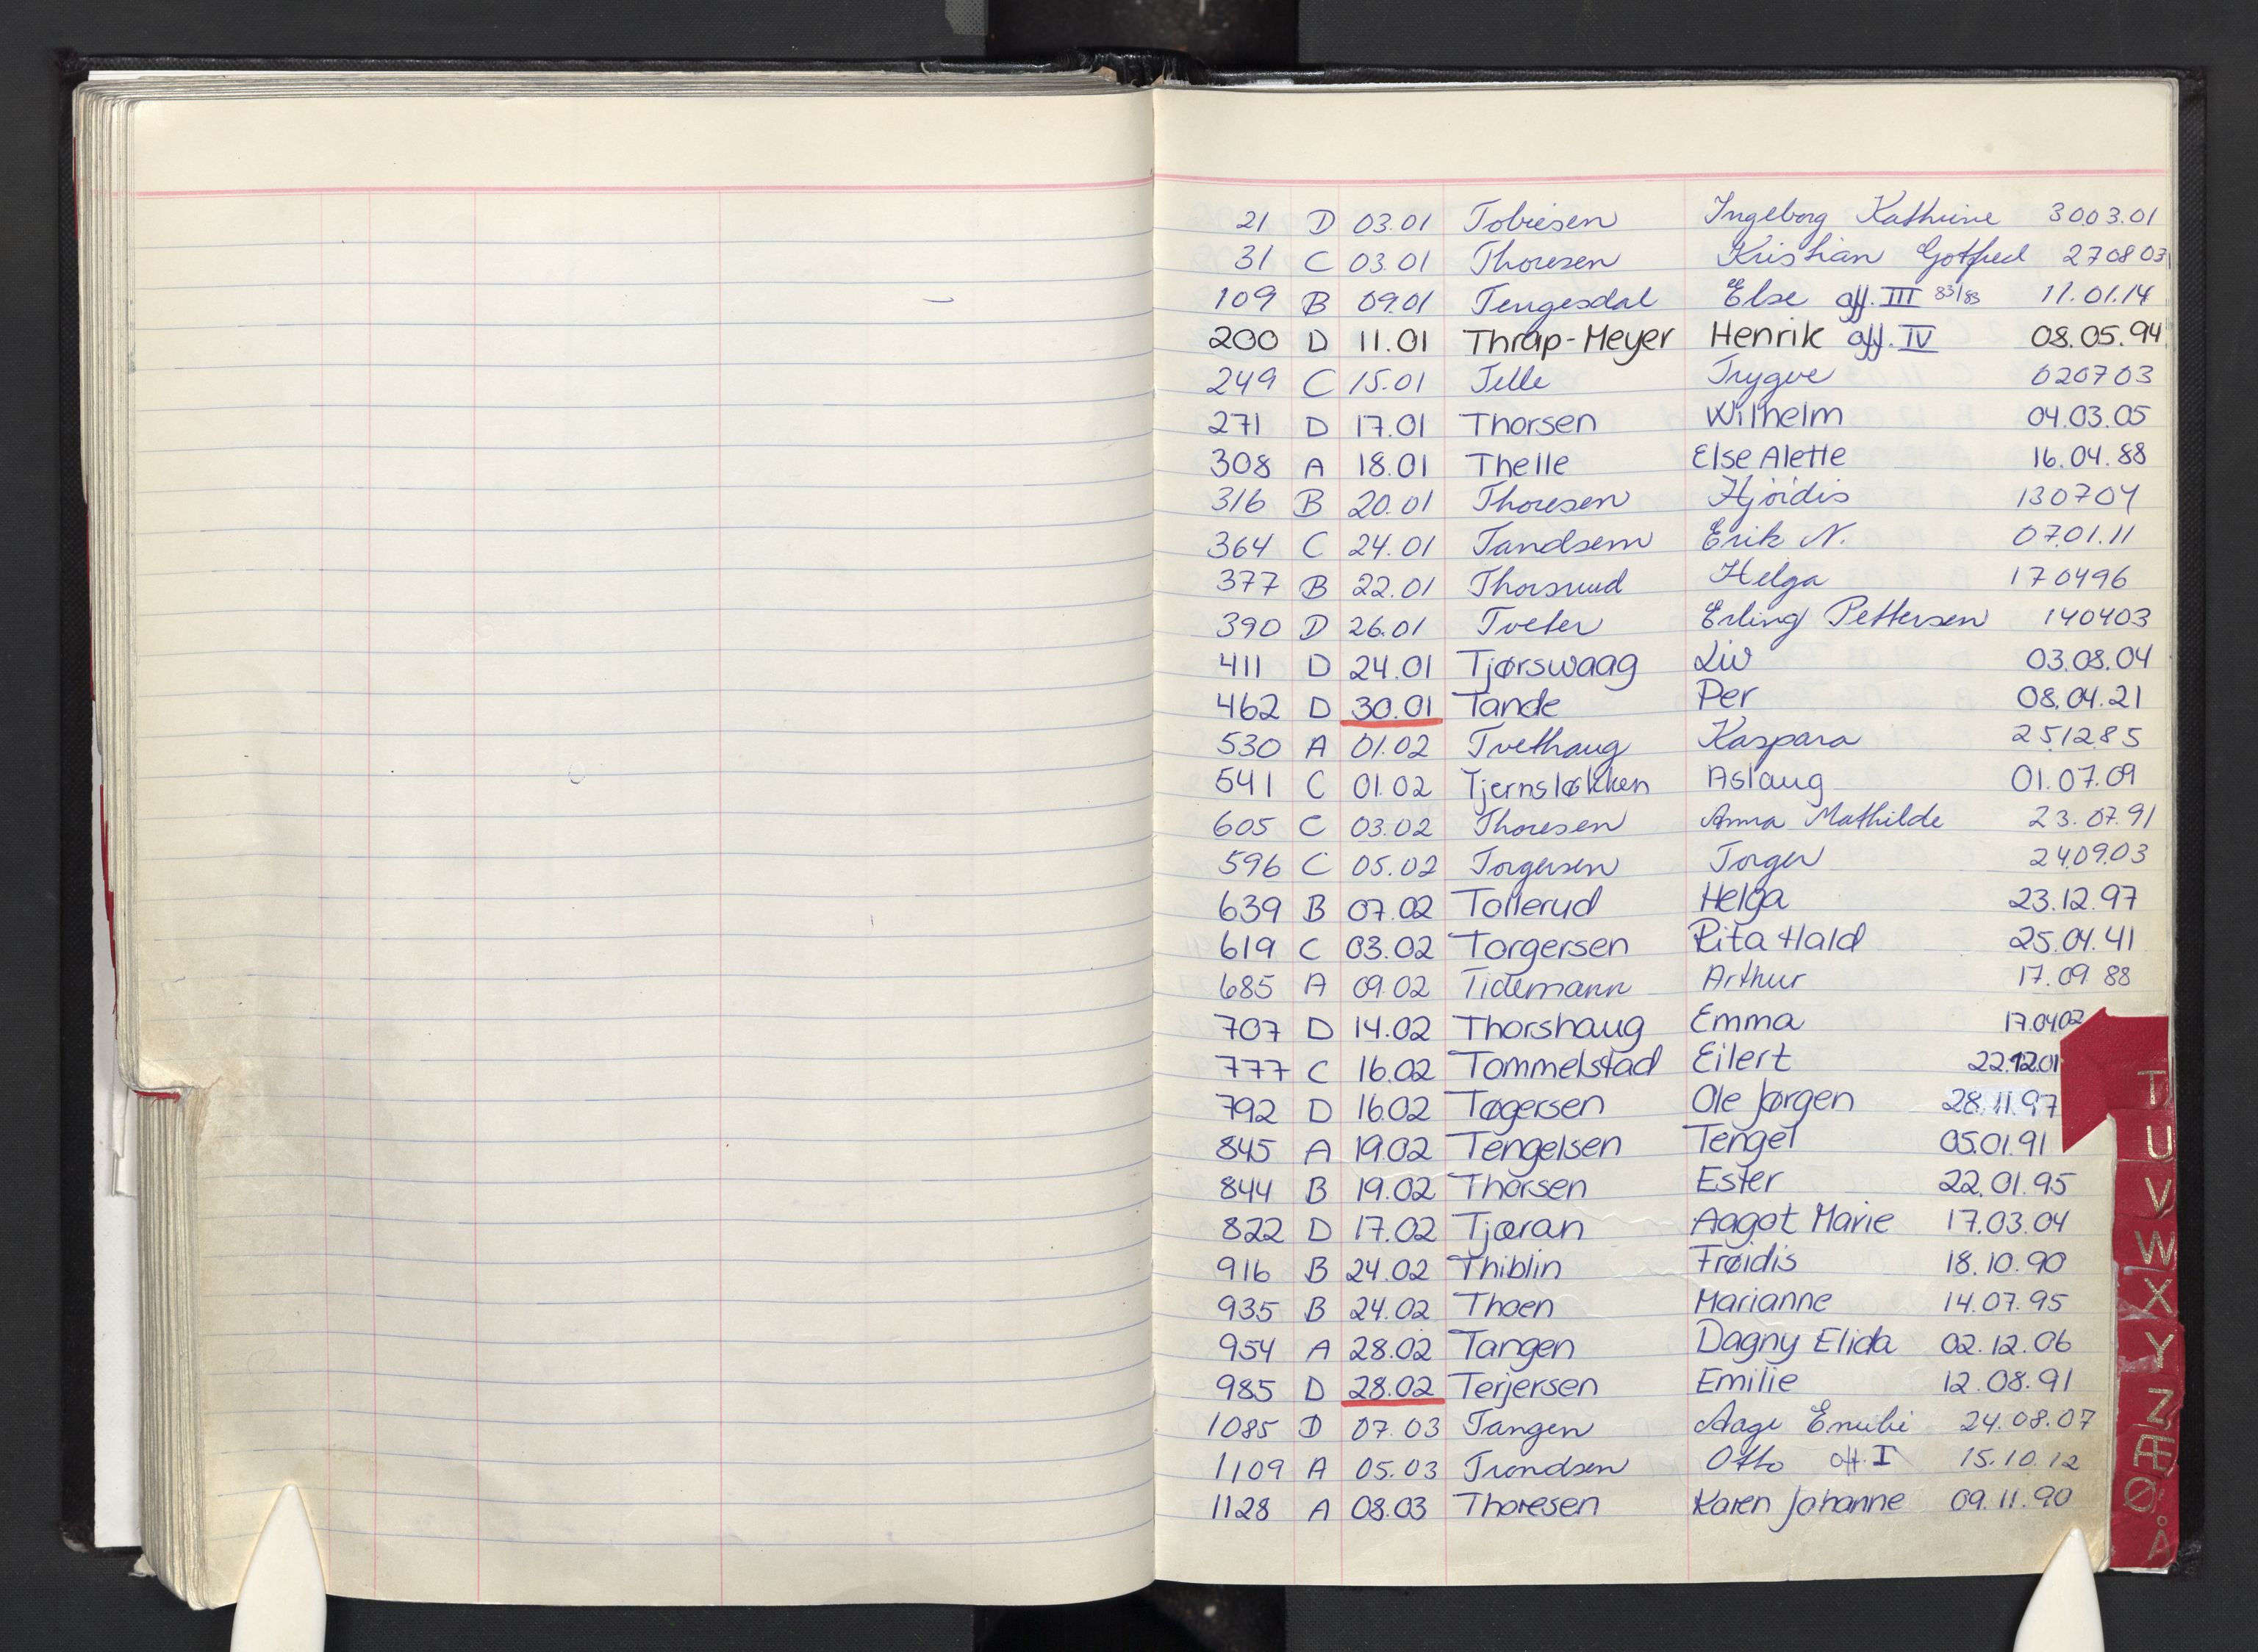 21 D 03.01 Tobiesen Ingeborg Kathrine 3003.01
31 C 03.01 Thoresen Kristian Gotfred 270803
109 B 09.01 Tengesdal Else aff. III 83/83 11.01.14
200 D 11.01 Thrap-Meyer Henrik aff. IV 08.05.94
249 C 15.01 Telle Trygve 020703
271 D 17.01 Thorsen Wilhelm 04.03.05
308 A 18.01 Thelle Else Alette 16.04.88
316 B 20.01 Thoresen Hjørdis 130704
364 C 24.01 Tandsem Erik N. 0701.11
377 B 22.01 Thorsrud Helga 170496
390 D 26.01 Tveter Erling Pettersen 140403
411 D 24.01 Tjørswaag Liv 03.08.04
462 D 30.01 Tande Per 08.04.21
530 A 01.02 Tvethaug Kaspara 251285
541 C 01.02 Tjernsløkken Aslaug 01.07.09
605 C 03.02 Thoresen Anna Mathilde 23.07.91
596 C 05.02 Torgersen Torger 240903
639 B 07.02 Tollerud Helga 23.12.97
619 C 03.02 Torgersen Rita Hald 25.04.41
685 A 09.02 Tidemann Arthur 17.09.88
707 D 14.02 Thorshaug Emma 17.0402
777 C 16.02 Tommelstad Eilert 22.12.01
792 D 16.02 Tøgersen Ole Jørgen 28.11.97
845 A 19.02 Tengelsen Tengel 05.01.91
844 B 19.02 Thorsen Ester 22.01.95
822 D 17.02 Tjæran Aagot Marie 17.03.04
916 B 24.02 Thiblin Frøidis 18.10.90
935 B 24.02 Thoen Marianne 14.07.95
954 A 28.02 Tangen Dagny Elida 02.12.06
985 D 28.02 Terjersen Emilie 12.08.91
1085 D 07.03 Tangen Aage 24.08.07
1109 A 05.03 Trondsen Otto aff. I 15.10.12
1128 A 08.03 Thoresen Karen Johanne 09.11.90
T
U
V
W
X
Y
Z
Æ
Ø
Å